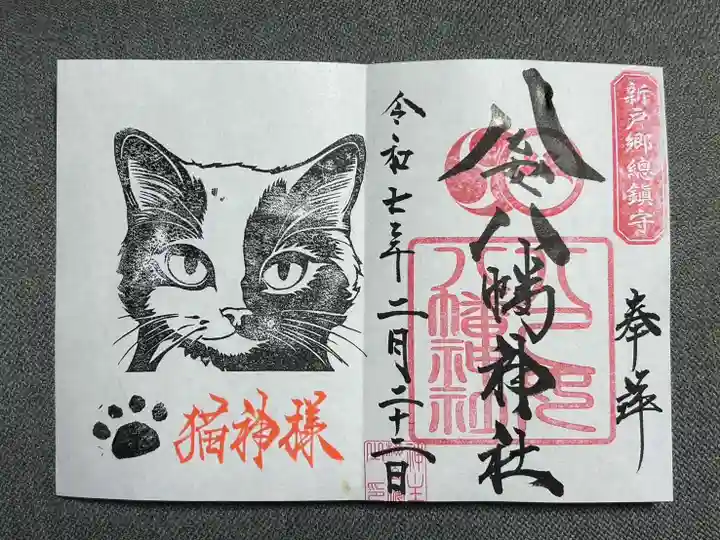 新戸郷總鎮守
奉拝
八八幡神社
八幡神社
令和七年二月二十二日
猫神様